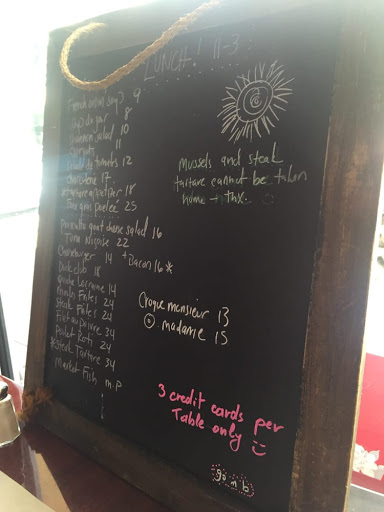 LUNCH! 11-3
French onion soup 9
Soup du jour 8
salad 10
11
tomates 12
17
18
Foie gras poelee 25
Prosciutto goat cheese salad 16
Tuna Niçoise 22
Cheeseburger 14 + Bacon 16*
Duck club 18
Quiche Lorraine 14
Moules Frites 24
Steak Frites 24
Filet au poivre 34
Poulet Roti 24
*Steak Tartare 34
Market Fish m.p
mussels and steak
tartare cannot be taken
home - thx.
Croque monsieur 13
madame 15
3 credit cards per
Table only